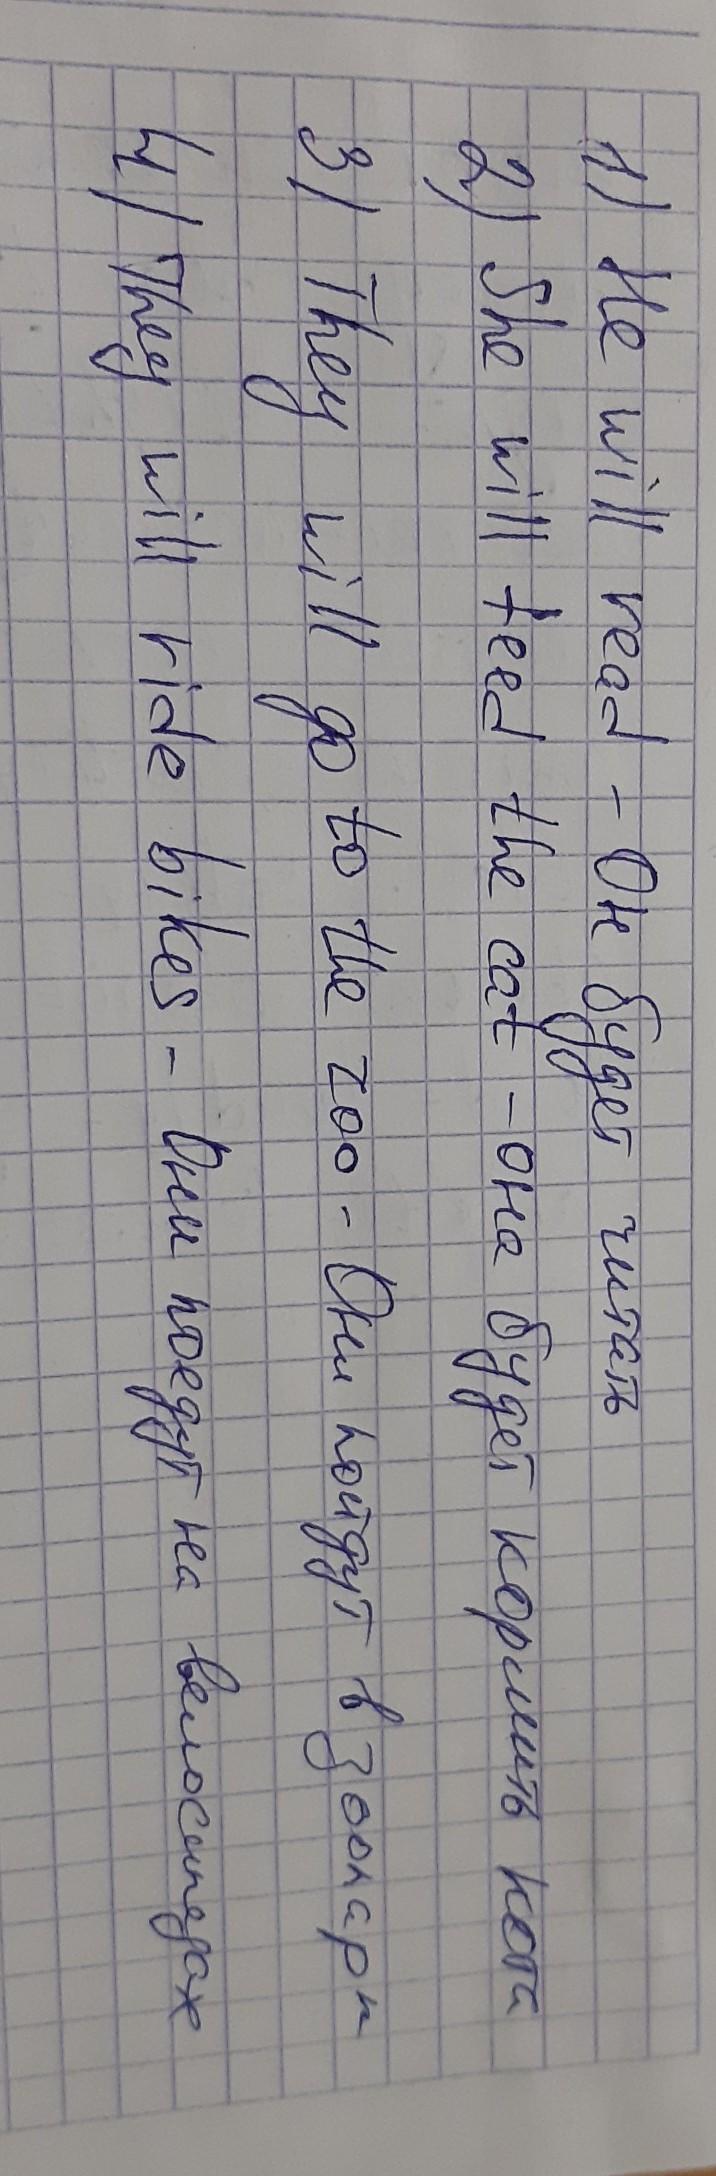 1) He will read - Он будет читать
2) She will feed the cat - она будет кормить кота
3) They will go to the zoo - Они пойдут в зоопарк
4) They will ride bikes - Они поедут на велосипедах